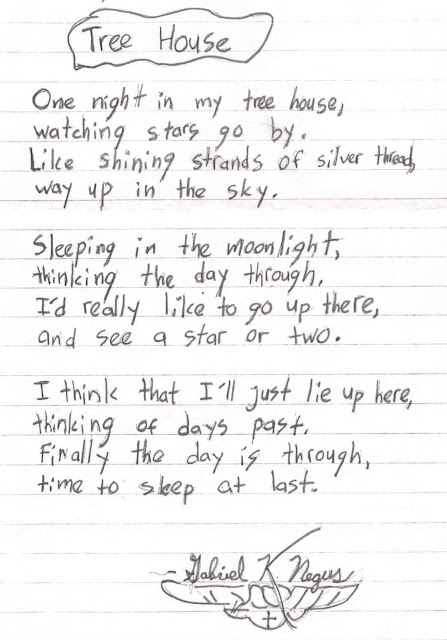 Tree House
One night in my tree house,
watching stars go by.
Like shining strands of silver thread,
way up in the sky.
Sleeping in the moonlight,
thinking the day through,
I'd really like to go up there,
and see a star or two.
I think that I'll just lie up here,
thinking of days past.
Finally the day is through,
time to sleep at last.
- Gabriel K Negus